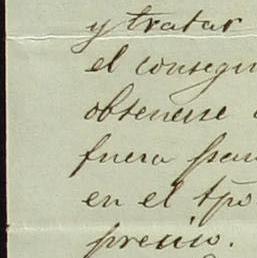 y tratar
el consegu
obtenerse
fuera
en el tpo
preciso.